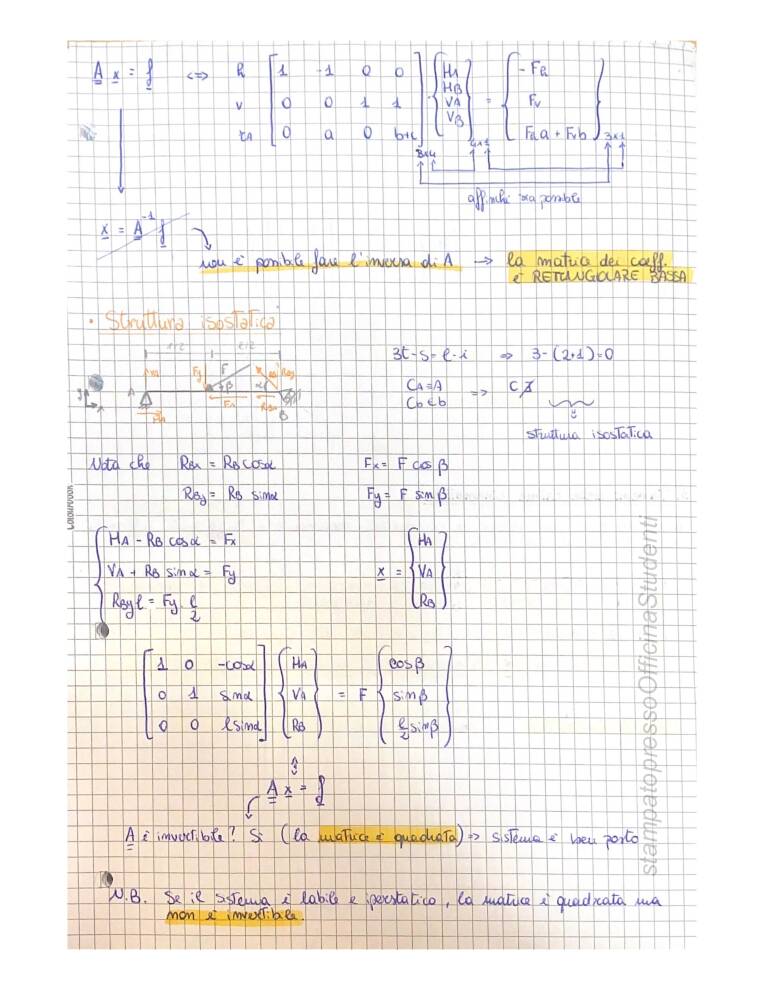 A x = f <=> h [ 1 -1 0 0 ] { HA } = { - Fh }
v 0 0 1 1 HB VA Fv
rA 0 a 0 b+c VB Fha + Fvb
3x4 4x1 3x1
affinché sia possibile
x = A⁻¹ f
non è possibile fare l'inversa di A → la matrice dei coeff.
è RETTANGOLARE BASSA
• Struttura isostatica
l/2 l/2
3t-s = l-i => 3-(2+1)=0
A Fy F β Fx α RBx RBy B
CA ≡ A
CB ∈ b => C ∄
struttura isostatica
Nota che RBx = RB cosα Fx = F cos β
RBy = RB sinα Fy = F sin β
{ HA - RB cosα = Fx
VA + RB sinα = Fy
RBy l = Fy · l/2
x = { HA VA RB }
[ 1 0 -cosα ] { HA } = F { cosβ }
0 1 sinα VA sinβ
0 0 lsinα RB l/2 sinβ
A x = f
A è invertibile? Si (la matrice è quadrata) => sistema è ben posto
N.B. Se il sistema è labile e iperstatico, la matrice è quadrata ma
non è invertibile.
stampatopressoOfficinaStudenti